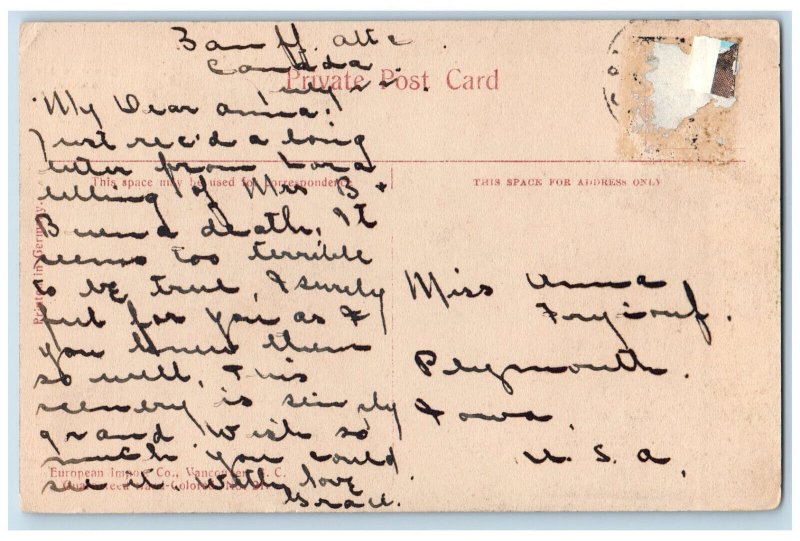 Banff. Alta.
Canada
Private Post Card
My Dear Anna:
Just rec'd a long
letter from Lora
This space may be used for correspondence
THIS SPACE FOR ADDRESS ONLY
telling of Mrs B +
Buena death, It
seems too terrible
to be true, I surely
Printed in Germany.
feel for you as I
you knew them
so well, This
scenery is simply
grand Wish so
much you could
European Import Co., Vancouver, B. C.
see it. With love
Guaranteed Hand-Colored, No.
Grace.
Miss Anna
Plymouth.
Iowa,
U. S. A,